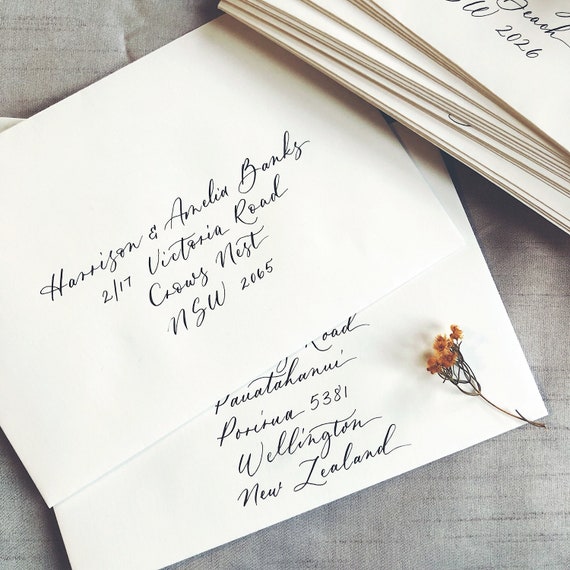 Harrison & Amelia Banks
2/17 Victoria Road
Crows Nest
NSW 2065
Road
Pauatahanui
Porirua 5381
Wellington
New Zealand
Beach
NSW 2026